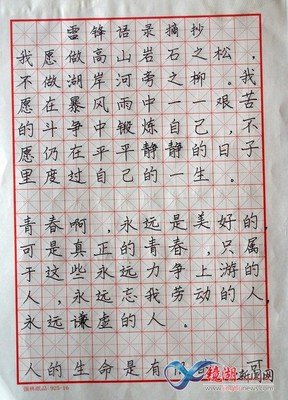 雷锋语录摘抄
我愿做高山岩石之松，
不做湖岸河旁之柳。我
愿在暴风雨中一一艰苦
的斗争中锻炼自己，不
愿仍在平平静静的日子
里度过自己的一生。
青春啊，永远是美好的，
可是真正的青春，只属
于这些永远力争上游的
人，永远忘我劳动的人，
永远谦虚的人。
人的生命是有限的，可